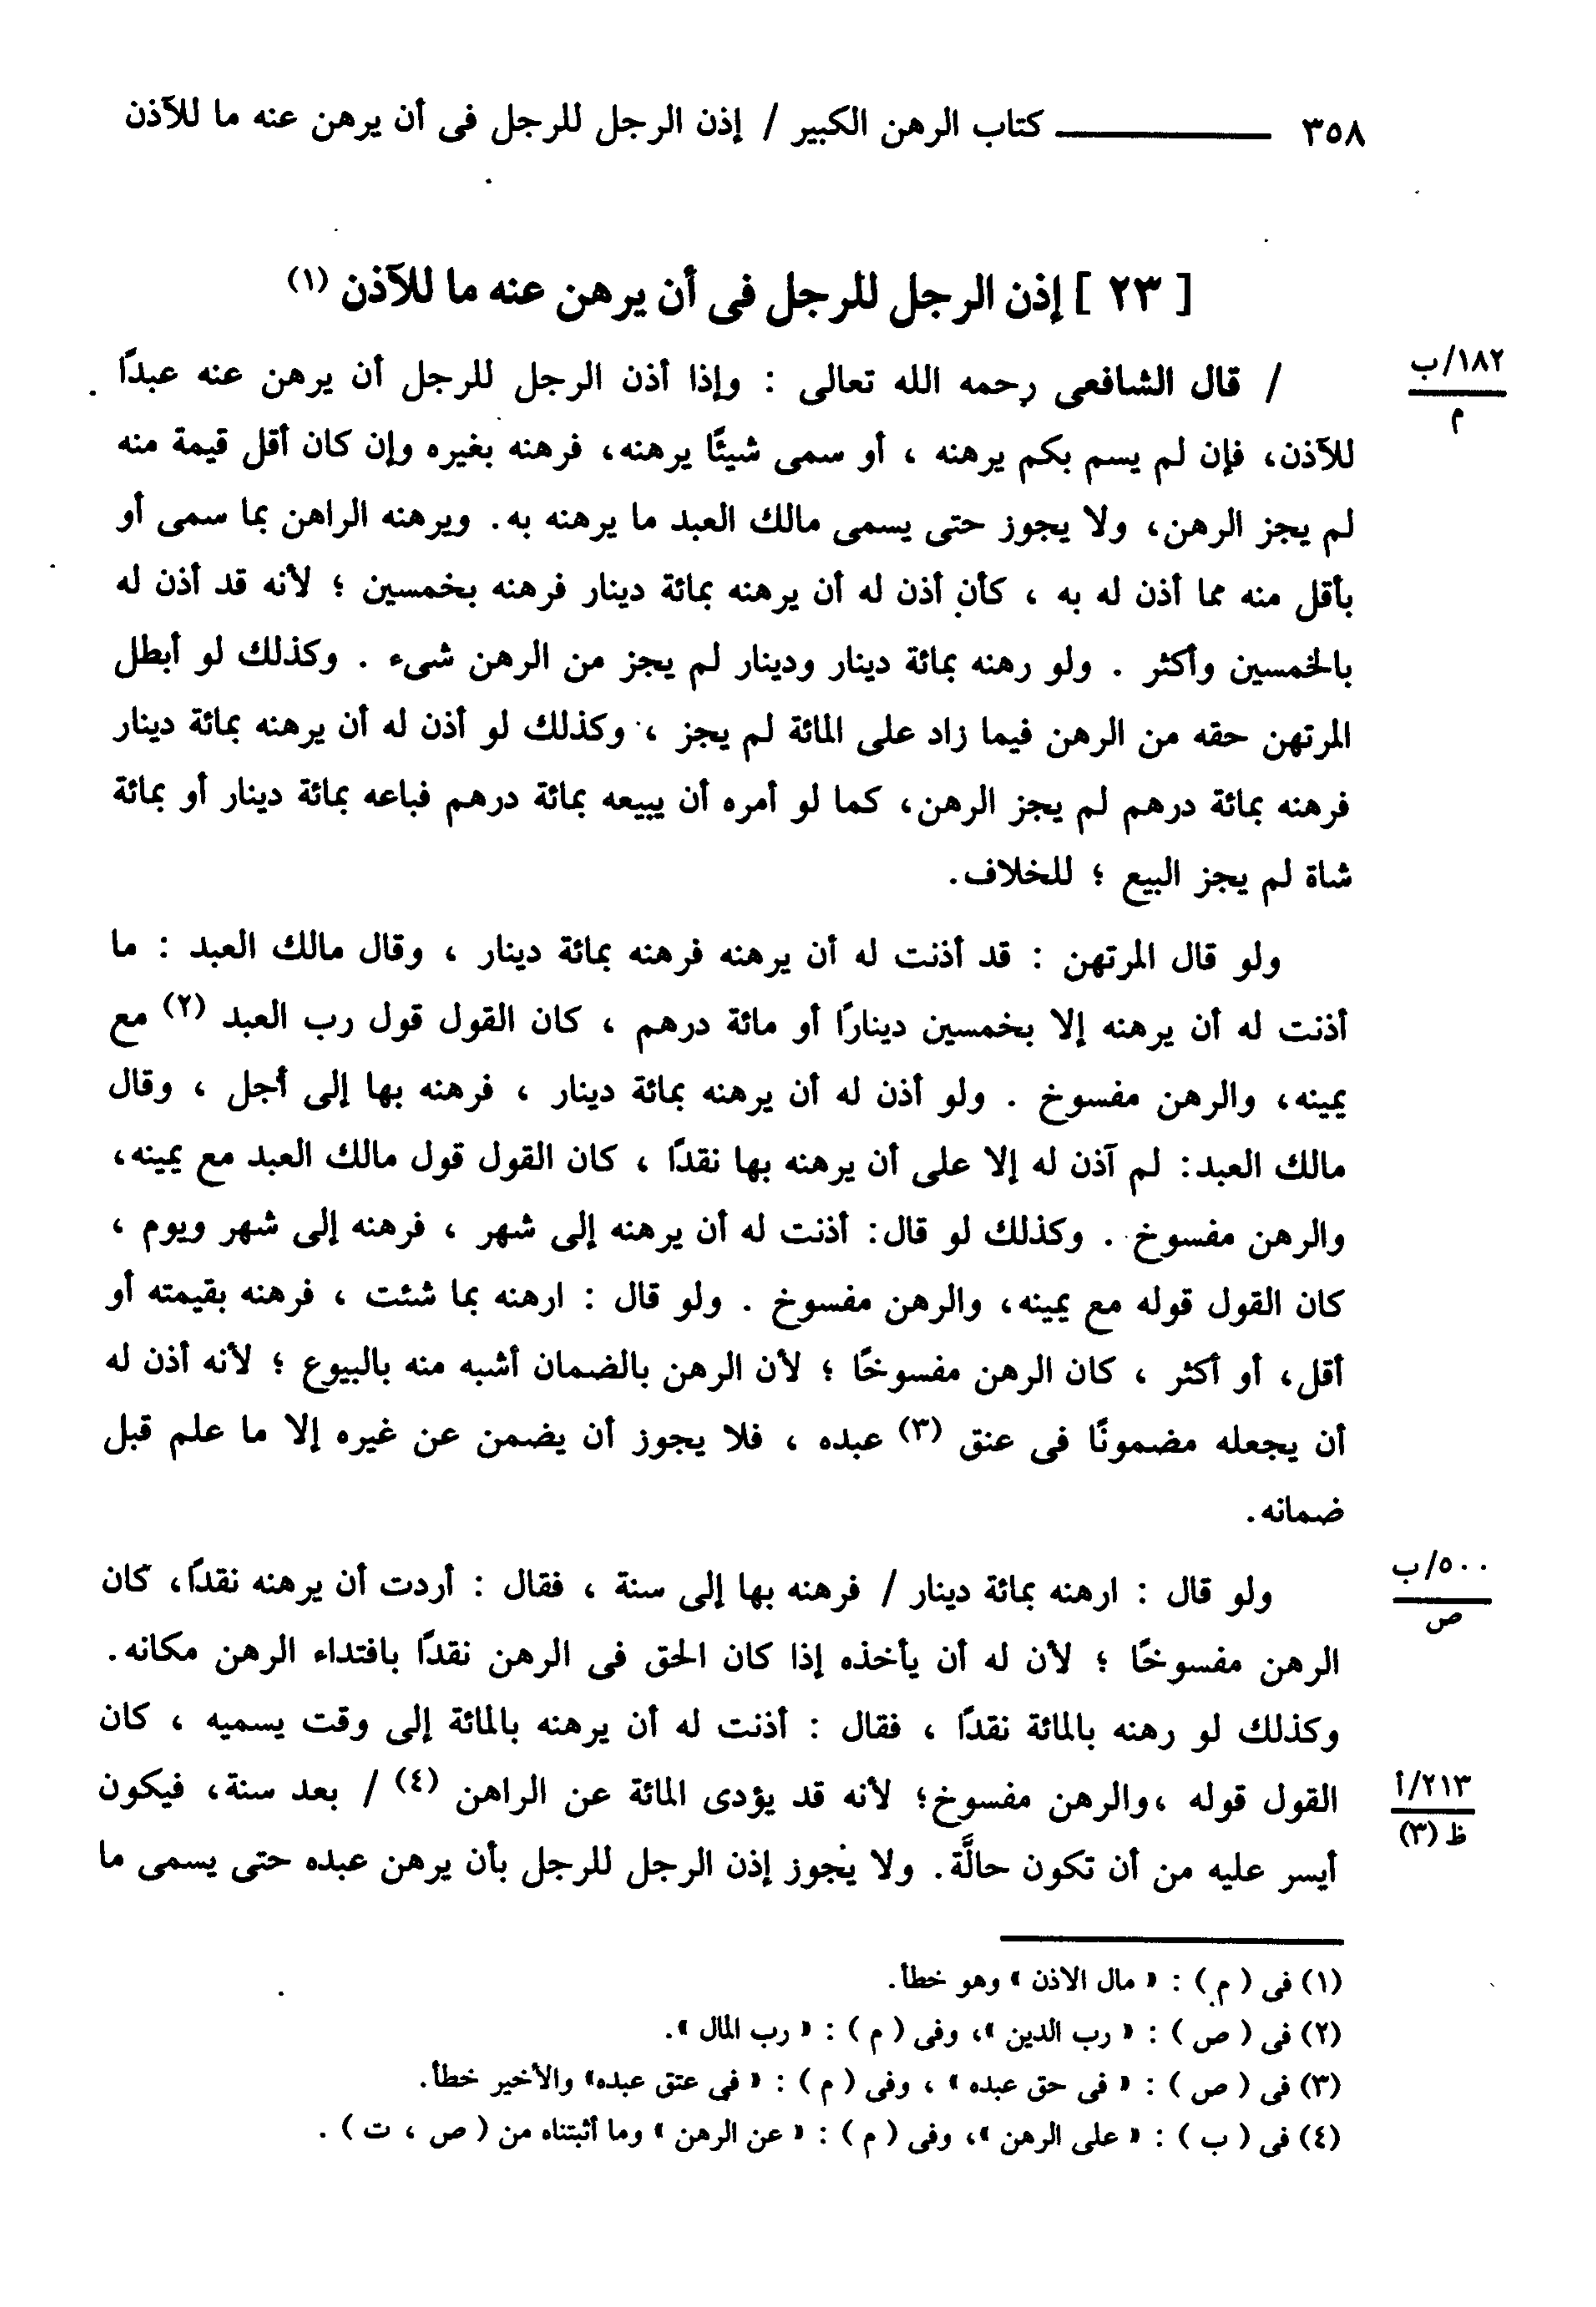 ٣٥٨ ـــــــ كتاب الرهن الكبير / إذن الرجل للرجل فى أن يرهن عنه ما للآذن
[ ٢٣ ] إذن الرجل للرجل فى أن يرهن عنه ما للآذن (١)
١٨٢/ب
م
/ قال الشافعى رحمه الله تعالى : وإذا أذن الرجل للرجل أن يرهن عنه عبدًا
للآذن، فإن لم يسم بكم يرهنه ، أو سمى شيئًا يرهنه، فرهنه بغيره وإن كان أقل قيمة منه
لم يجز الرهن، ولا يجوز حتى يسمى مالك العبد ما يرهنه به. ويرهنه الراهن بما سمى أو
بأقل منه مما أذن له به ، كأن أذن له أن يرهنه بمائة دينار فرهنه بخمسين ؛ لأنه قد أذن له
بالخمسين وأكثر . ولو رهنه بمائة دينار ودينار لم يجز من الرهن شىء . وكذلك لو أبطل
المرتهن حقه من الرهن فيما زاد على المائة لم يجز ، وكذلك لو أذن له أن يرهنه بمائة دينار
فرهنه بمائة درهم لم يجز الرهن، كما لو أمره أن يبيعه بمائة درهم فباعه بمائة دينار أو بمائة
شاة لم يجز البيع ؛ للخلاف.
ولو قال المرتهن : قد أذنت له أن يرهنه فرهنه بمائة دينار ، وقال مالك العبد : ما
أذنت له أن يرهنه إلا بخمسين دينارًا أو مائة درهم ، كان القول قول رب العبد (٢) مع
يمينه، والرهن مفسوخ . ولو أذن له أن يرهنه بمائة دينار ، فرهنه بها إلى أجل ، وقال
مالك العبد: لم آذن له إلا على أن يرهنه بها نقدًا ، كان القول قول مالك العبد مع يمينه،
والرهن مفسوخ . وكذلك لو قال: أذنت له أن يرهنه إلى شهر ، فرهنه إلى شهر ويوم ،
كان القول قوله مع يمينه، والرهن مفسوخ . ولو قال : ارهنه بما شئت ، فرهنه بقيمته أو
أقل، أو أكثر ، كان الرهن مفسوخًا ؛ لأن الرهن بالضمان أشبه منه بالبيوع ؛ لأنه أذن له
أن يجعله مضمونًا فى عنق (٣) عبده ، فلا يجوز أن يضمن عن غيره إلا ما علم قبل
ضمانه.
٥٠٠/ب
ص
ولو قال : ارهنه بمائة دينار / فرهنه بها إلى سنة ، فقال : أردت أن يرهنه نقدًا، كان
الرهن مفسوخًا ؛ لأن له أن يأخذه إذا كان الحق فى الرهن نقدًا بافتداء الرهن مكانه.
وكذلك لو رهنه بالمائة نقدًا ، فقال : أذنت له أن يرهنه بالمائة إلى وقت يسميه ، كان
القول قوله ،والرهن مفسوخ؛ لأنه قد يؤدى المائة عن الراهن (٤) / بعد سنة، فيكون
٢١٣/أ
ظ (٣)
أيسر عليه من أن تكون حالَّة. ولا يجوز إذن الرجل للرجل بأن يرهن عبده حتى يسمى ما
(١) فى ( م ) : « مال الاذن » وهو خطأ.
(٢) فى ( ص ) : « رب الدين »، وفى ( م ) : « رب المال ».
(٣) فى ( ص ) : « فى حق عبده » ، وفى ( م ) : « فى عتق عبده» والأخير خطأ.
(٤) فى ( ب ) : « على الرهن »، وفى ( م ) : « عن الرهن » وما أثبتناه من ( ص ، ت ) .